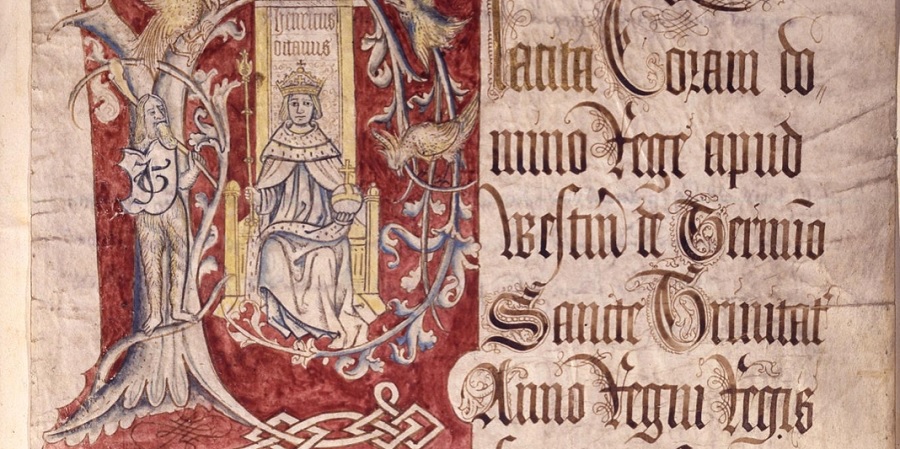 henricus
octauus
Placita Coram do
mino Rege apud
Westm̃ de Termĩo
Sancte Trinitat
Anno Regni Regis